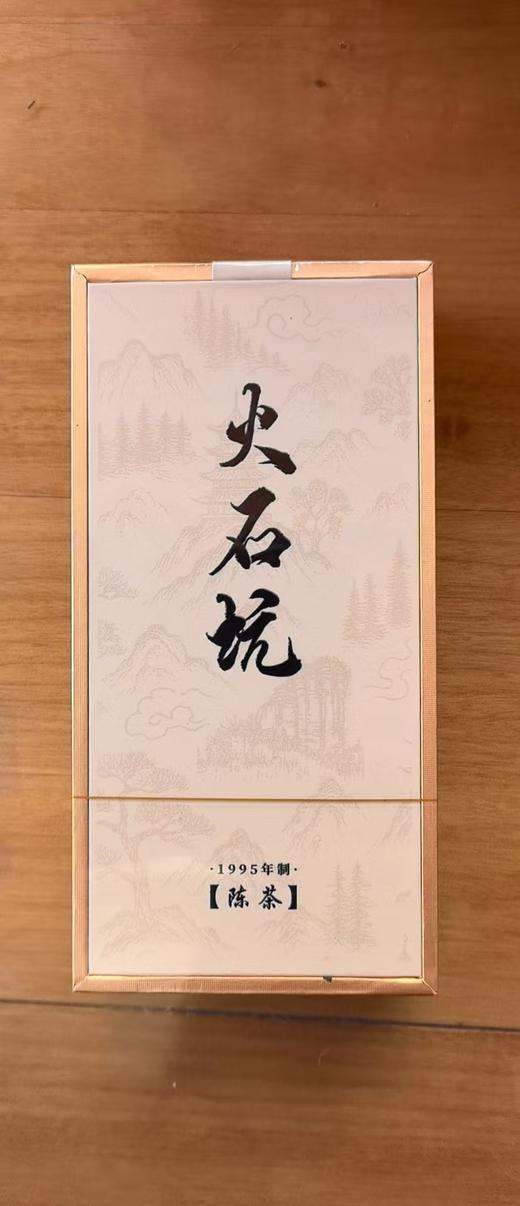 火石坑
·1995年制·
【陈茶】